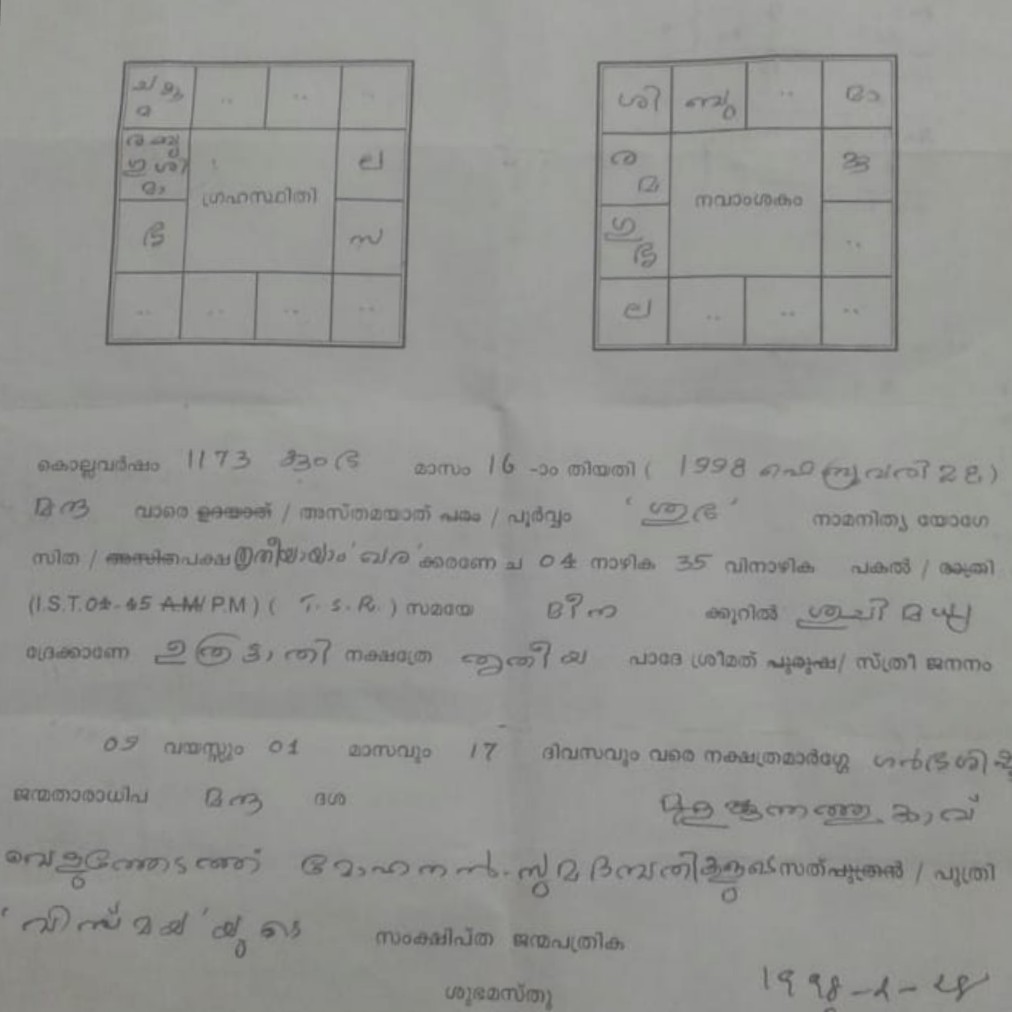 ച
മ
ല
ഗ്രഹസ്ഥിതി
സ
ശി ബു മാ
ര
മ
നവാംശകം
ഗു
ല
കൊല്ലവർഷം 1173 കുംഭ മാസം 16 -ാം തിയതി ( 1998 ഫെബ്രുവരി 28 )
മന്ദ വാരെ ഉദയാത് / അസ്തമയാത് പരം / പൂർവ്വം ' ശുഭ ' നാമനിത്യ യോഗേ
സിത / അസിതപക്ഷ തൃതീയായാം ' ഖര ' ക്കരണേ ച 04 നാഴിക 35 വിനാഴിക പകൽ / രാത്രി
(I.S.T. 04-45 A.M/ P.M ) ( T. S. R. ) സമയേ മീന ക്കൂറിൽ ശുചി മദ്ധ്യ
ദ്രേക്കാണേ ഉത്രട്ടാതി നക്ഷത്രേ തൃതീയ പാദേ ശ്രീമത് പുരുഷ/ സ്ത്രീ ജനനം
09 വയസ്സും 01 മാസവും 17 ദിവസവും വരെ നക്ഷത്രമാർഗ്ഗേ ഗർഭശിഷ്ട
ജന്മതാരാധിപ മന്ദ ദശ
മുളങ്കുന്നത്തുകാവ്
മോഹനൻ.സുമ ദമ്പതികളുടെ സത്പുത്രൻ / പുത്രി
' വിസ്മയ ' യുടെ സംക്ഷിപ്ത ജന്മപത്രിക
ശുഭമസ്തു
1998-2-28